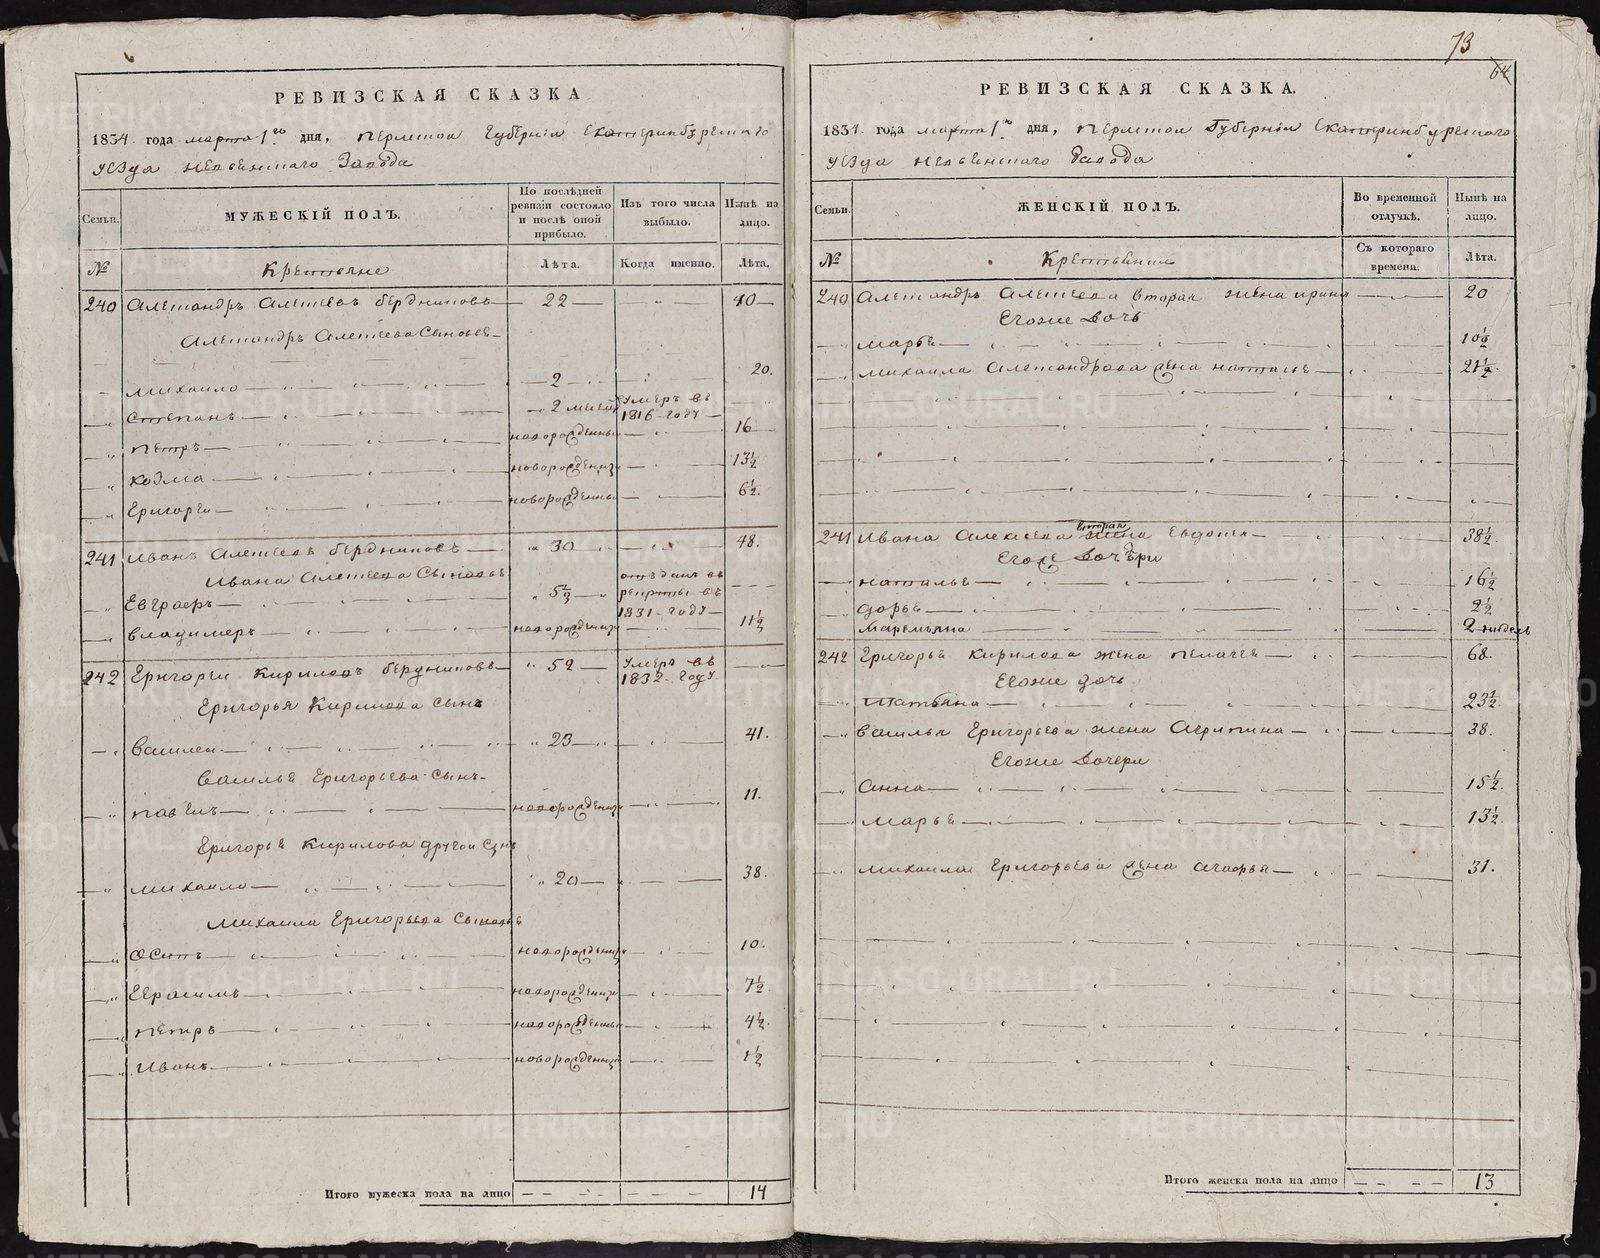 73
64
РЕВИЗСКАЯ СКАЗКА
1834 года марта 1го дня, Пермской Губернии Екатеринбургского
уезда Невьянского Завода
Семьи.
МУЖЕСКІЙ ПОЛЪ.
По послѣдней ревизіи состояло и послѣ оной прибыло.
Изъ того числа выбыло.
Нынѣ на лицо.
№
Крестьяне
Лѣта.
Когда именно.
Лѣта.
240 Александръ Алексеевъ Бердниковъ 22 40
Александръ Алексеева Сыновье
Михаило 2 20.
Степанъ 2 месец умеръ въ 1816 году
Петръ новорожденны 16
Козма новорожденны 13½
Григореи новорожденны 6½.
241 Иванъ Алексеевъ Бердниковъ 30 48.
Ивана Алексеева Сыновье
Евграфъ 5½ отъданъ въ рекруты въ 1831 году
Владимеръ новорожденны 11½
242 Григореи Кириловъ Бердниковъ 52 умеръ въ 1832 году
Григорья Кирилова сынъ
Василеи 23 41.
Василья Григорьева сынъ
Павелъ новорожденны 11.
Григорья Кирилова другои сынъ
Михаило 20 38.
Михаила Григорьева Сыновье
Осипъ новорожденны 10.
Герасимъ новорожденны 7½
Петръ новорожденны 4½
Иванъ новорожденны 1½
Итого мужеска пола на лицо 14
РЕВИЗСКАЯ СКАЗКА.
1834. года марта 1го дня, Пермской Губернии Екатеринбургского
уезда Невьянского Завода
Семьи.
ЖЕНСКІЙ ПОЛЪ.
Во временной отлучкѣ.
Нынѣ на лицо.
№
Крестьянки
Съ котораго времени.
Лѣта.
240 Александръ Алексеева вторая жена Ирина 20
Егоже Дочь
Марья 10½
Михаила Александрова жена Наталья 21½.
241 Ивана Алексеева вторая жена Евдокея 38½
Егоже Дочери
Наталья 16½
Дарья 2½
Маремьяна 2 недель
242 Григорья Кирилова жена Пелагея 68.
Егоже дочь
Татьяна 23½
Василья Григорьева жена Агрипина 38.
Егоже Дочери
Анна 15½.
Марья 13½
Михаила Григорьева жена Агафья 31.
Итого женска пола на лицо 13
METRIKI.GASO-URAL.RU